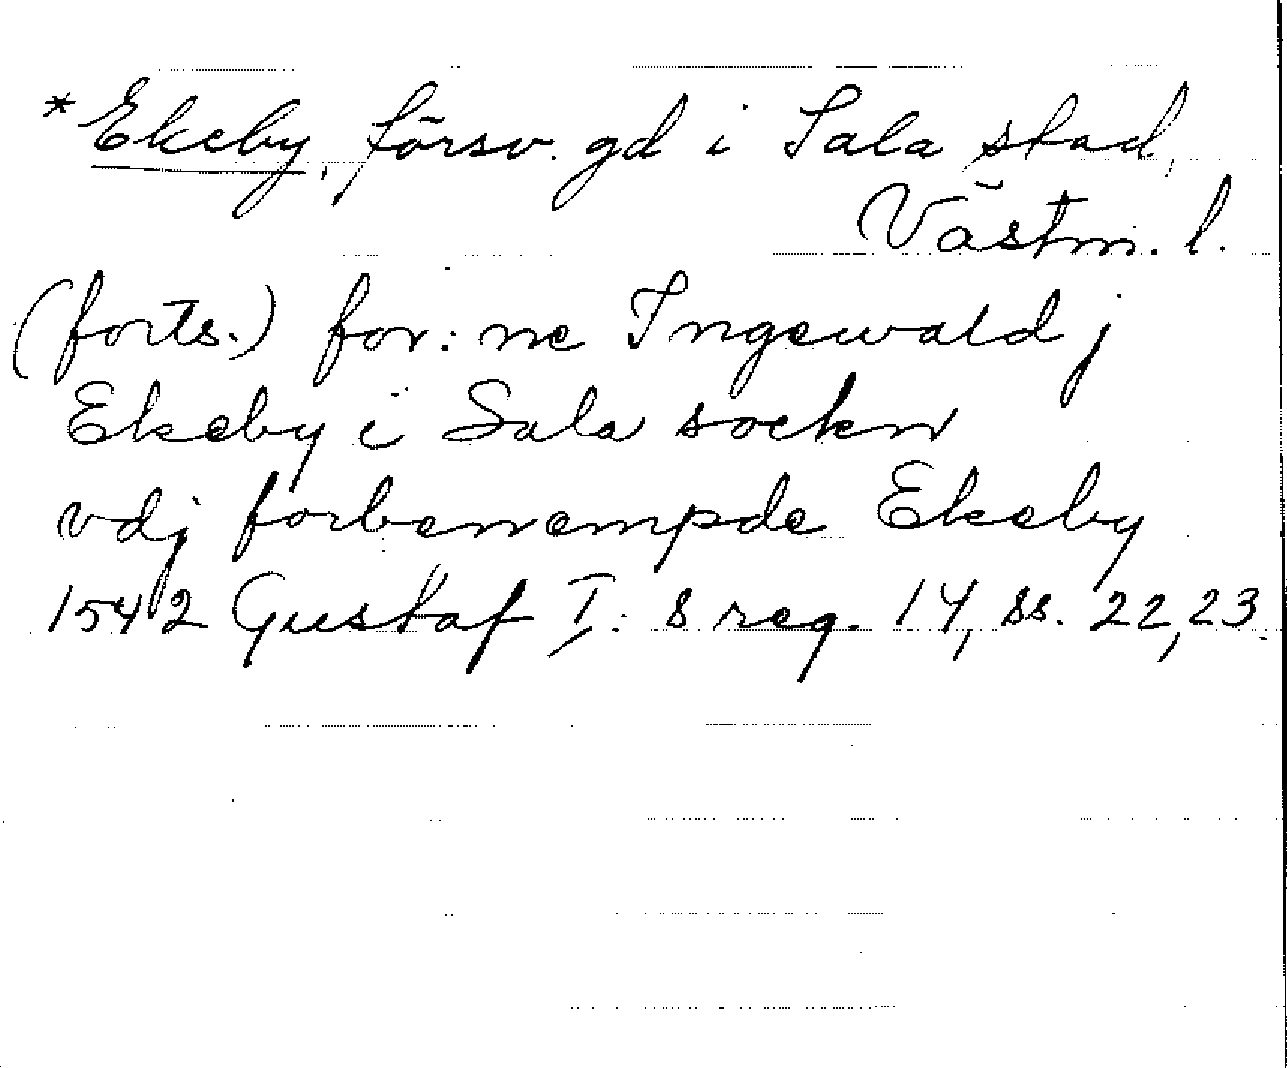 *Ekeby, försv. gd i Sala stad,
Västm. l.
(forts.) for:ne Ingewald j
Ekeby i Sala sockn
vdj forbenempde Ekeby
1542 Gustaf I:s reg. 14, ss. 22, 23.